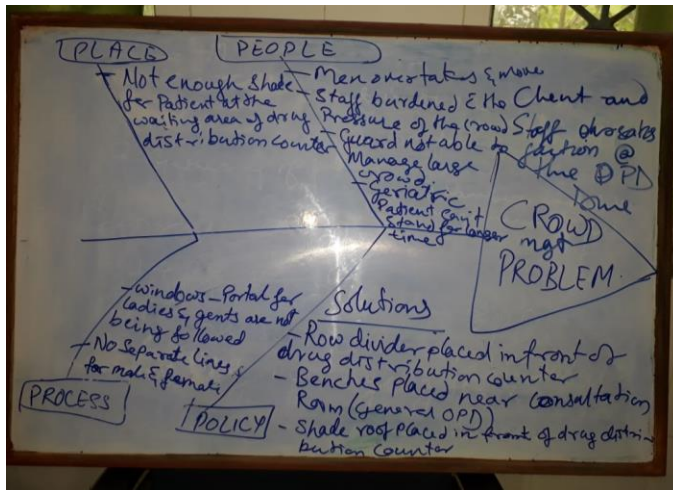 PLACE
- Not enough shade
for Patient at the
waiting area of drug
distribution counter
PEOPLE
- Men overtakes & move
- Staff burdened & the Client and
Pressure of the crowd Staff
- Guard not able to @
Manage large the OPD
crowd time
- Geriatric
Patient can't
stand for longer
time
CROWD
mgt
PROBLEM.
- Windows - Portal for
ladies & gents are not
being followed
- No Separate lines
for male & female
PROCESS
POLICY
Solutions
- Row divider placed in front of
drug distribution counter
- Benches placed near Consultation
Room (general OPD)
- Shade roof placed in front of drug distri
bution counter